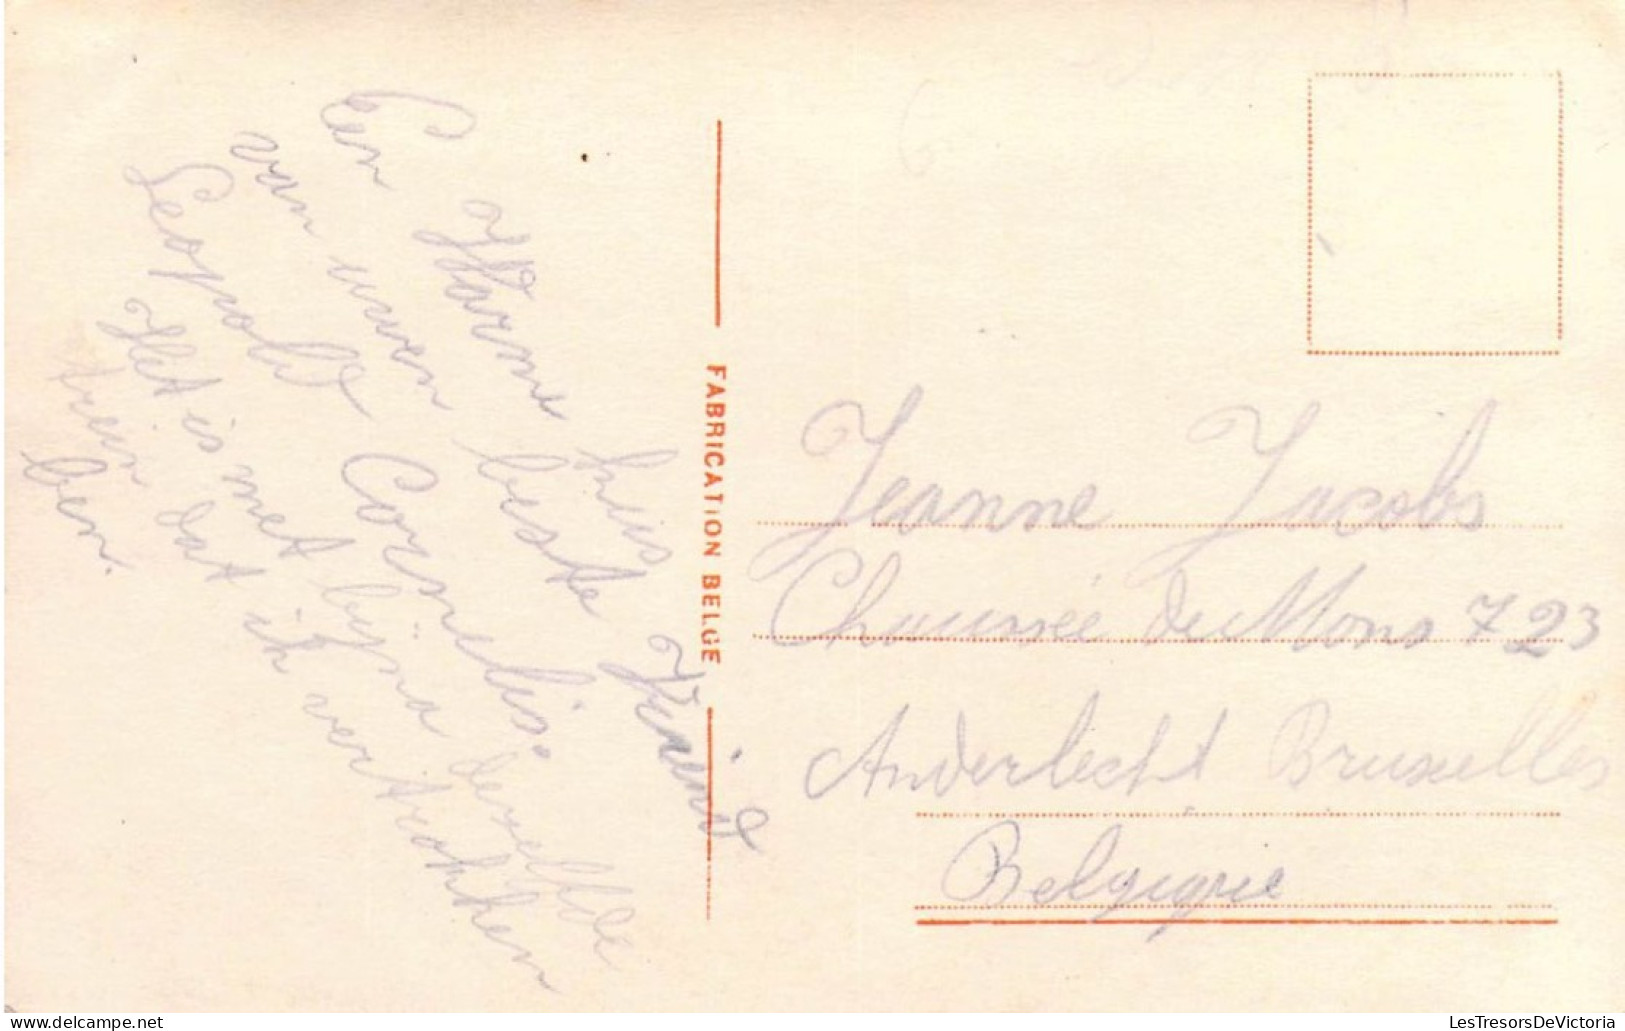 Een Warme kus
van uwen beste Vriend
Leopold Cornelis.
Het is met bijna dezelfde
trein dat ik vertrokken
ben.
FABRICATION BELGE
Jeanne Jacobs
Chaussée de Mons 723
Anderlecht Bruxelles
Belgiqie
LesTresorsDeVictoria